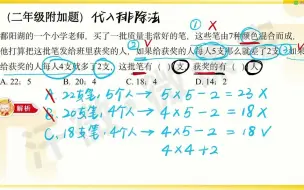 (二年级附加题) 代入排除法
① X
鄱阳湖的一个小学老师,买了一批质量非常好的笔,这些笔由7种颜色混合而成,
他打算把这批笔发给班里获奖的人,如果给获奖的人每人5支那么就差了2支;如果
给获奖的人每人4支就多了2支。这批笔有( )支,获奖的有( )人
A. 22. 5 B. 20. 4 C. 18. 4 D. 14.
解析
A. 22支笔,5个人→ 5×5-2=23 X
B. 20支笔,4个人→ 4×5-2=18 X
C. 18支笔,4个人→ 4×5-2=18 V
4×4+2